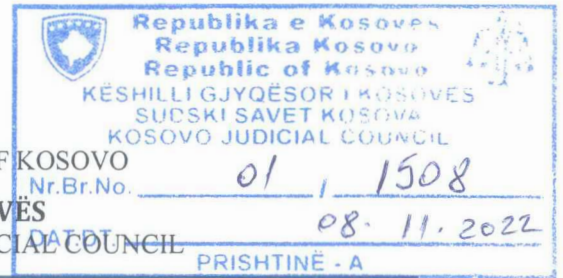 Republika e Kosovës
Republika Kosovo
Republic of Kosovo
KËSHILLI GJYQËSOR I KOSOVËS
SUDSKI SAVET KOSOVA
KOSOVO JUDICIAL COUNCIL
F KOSOVO
Nr.Br.No. 01 / 1508
VËS
DAT.DT. 08. 11. 2022
CIAL COUNCIL
PRISHTINË - A